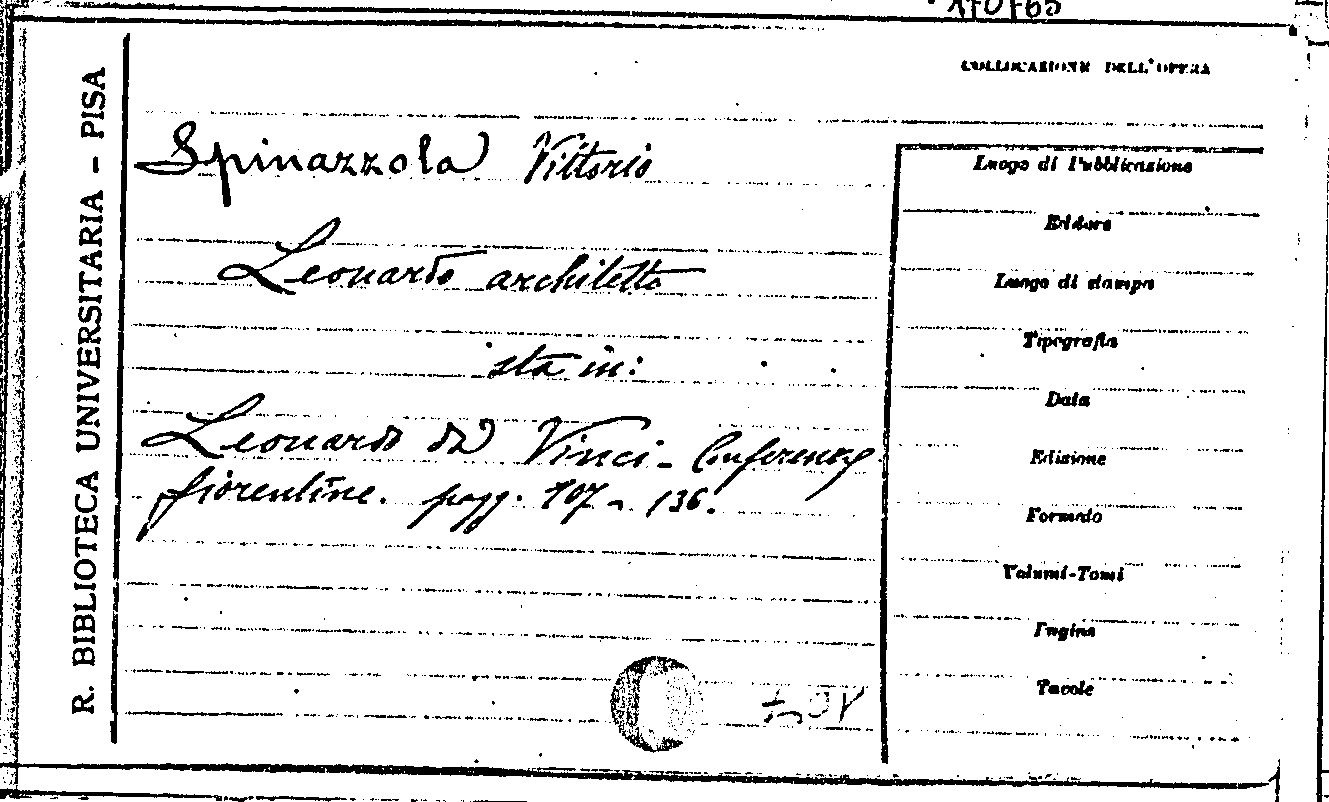 COLLOCAZIONE DELL'OPERA
R. BIBLIOTECA UNIVERSITARIA - PISA
Spinazzola Vittorio
Leonardo architetto
sta in:
Leonardo da Vinci - Conferenze
fiorentine. pagg. 107 - 136.
Luogo di Pubblicazione
Editore
Luogo di stampa
Tipografia
Data
Edizione
Formato
Volumi-Tomi
Pagine
Tavole